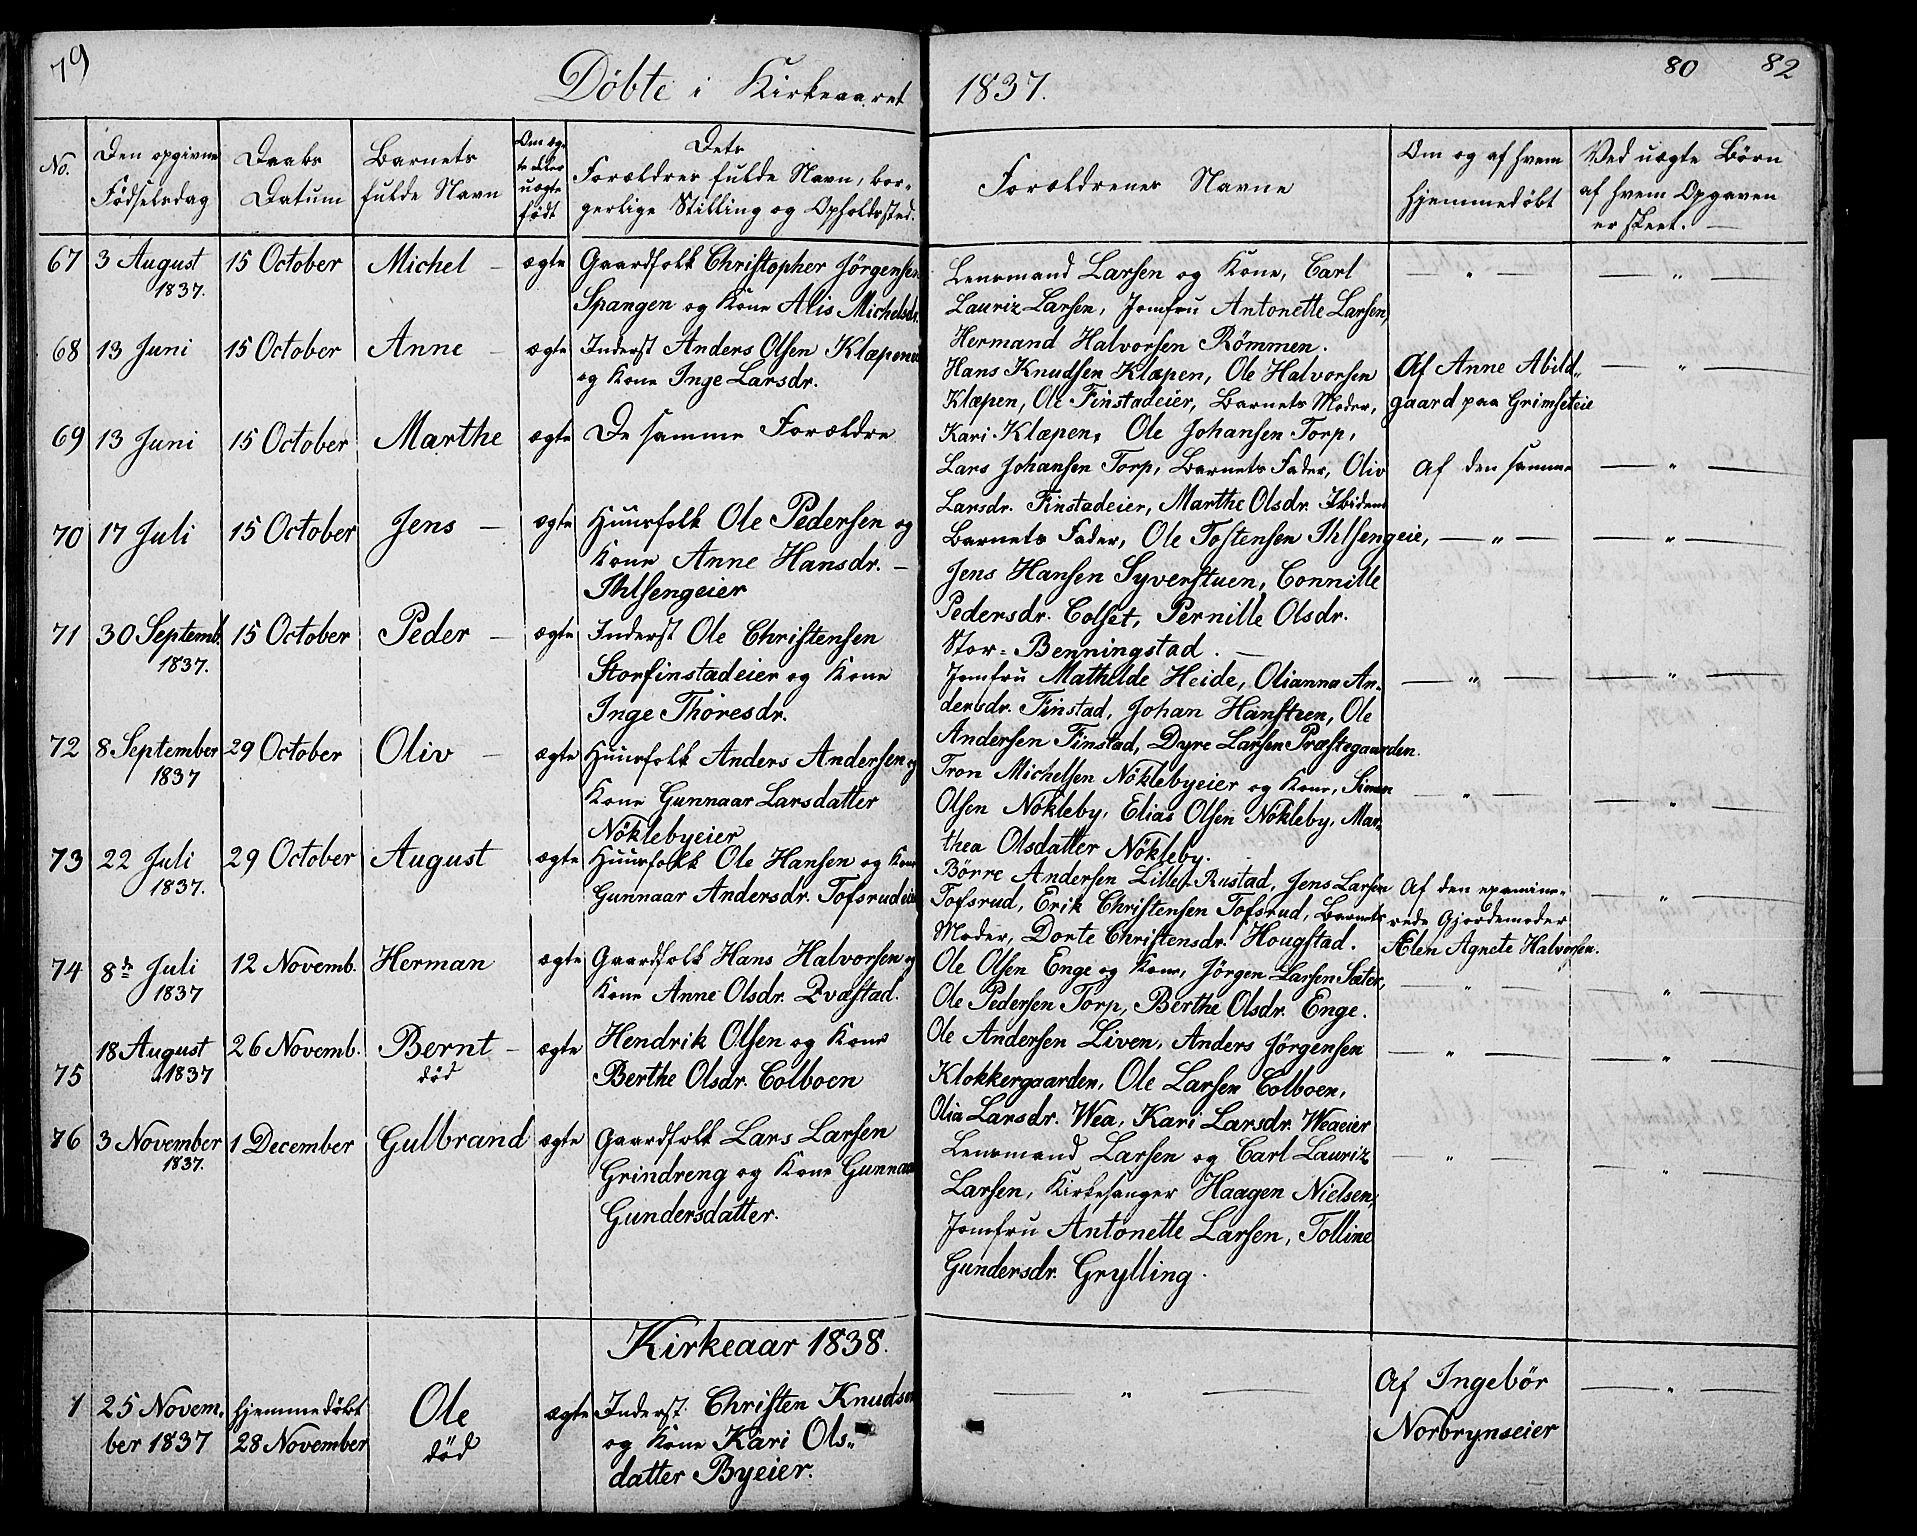 79
Döbte i Kirkeaaret
No.
Den opgivne
Födselsdag
Daabs
Datum
Barnets
fulde Navn
Om æg-
te eller
uægte
födt
Dets
Forældres fulde Navn, bor-
gerlige Stilling og Opholdssted.
67 3 August 15 October Michel — ægte Gaardfolk Christopher Jörgensen
1837.
Spangen og Kone Alis Michelsdr.
68 13 Juni 15 October Anne — ægte Inderst Anders Olsen Klæpen
og Kone Inge Larsdr.
69 13 Juni 15 October Marthe ægte De samme Forældre
70 17 Juli 15 October Jens — ægte Huusfolk Ole Pedersen og
Kone Anne Hansdr. —
Ihlsengeier
71 30 Septemb. 15 October Peder — ægte Inderst Ole Christensen
1837.
Storfinstadeier og Kone
Inge Thoresdr.
72 8 September 29 October Oliv — ægte Huusfolk Anders Andersen og
1837
Kone Gunnaar Larsdatter
Nöklebyeier
73 22 Juli 29 October August ægte Huusfolk Ole Hansen og Kone
1837.
Gunnaar Andersdr. Tofsrudeie
74 8de Juli 12 Novemb. Herman ægte Gaardfolk Hans Halvorsen og
1837
Kone Anne Olsdr. Qvæstad.
75 18 August 26 Novemb. Bernt — ægte Hendrik Olsen og Kone
1837 död
Berthe Olsdr. Colboen
76 3 November 1 December Gulbrand ægte Gaardfolk Lars Larsen
1837.
Grindreng og Kone Gunnaar
Gundersdatter.
Kirkeaar 1838.
1 25 Novem- hjemmedöbt Ole ægte Inderst Christen Knudsen
ber 1837 28 November död og Kone Kari Ols-
datter Byeier.
80 82
1837.
Forældrenes Navne
Om og af hvem
hjemmedöbt
Ved uægte Börn
af hvem Opgaven
er skeet. —
Lensmand Larsen og Kone, Carl — " — — " —
Lauriz Larsen, Jomfru Antonette Larsen,
Hermand Halvorsen Römmen.
Hans Knudsen Klæpen, Ole Halvorsen Af Anne Abild- — " —
Klæpen, Ole Finstadeier, Barnets Moder, gaard paa Grimseteie
Kari Klæpen, Ole Johansen Torp,
Lars Johansen Torp, Barnets Fader, Oliv Af den samme — " —
Larsdr. Finstadeier, Marthe Olsdr. Ibidem
Barnets Fader, Ole Tostensen Ihlsengeie, — " — — " —
Jens Hansen Syverstuen, Connille
Pedersdr. Colset, Pernille Olsdr.
Stor-Benningstad. —
Jomfru Mathilde Heide, Olianna An- — " — — " —
dersdr. Finstad, Johan Hansteen, Ole
Andersen Finstad, Dyre Larsen Præstegaarden.
Tron Michelsen Nöklebyeier og Kone, Simen — " — — " —
Olsen Nökleby, Elias Olsen Nökleby, Mar-
thea Olsdatter Nökleby.
Börre Andersen Lille-Rustad, Jens Larsen Af den examine- — " —
Tofsrud, Erik Christensen Tofsrud, Barnets rede Gjordemoder
Moder, Dorte Christensdr. Hougstad. Ælen Agnete Halvorsen.
Ole Olsen Enge og Kone, Jörgen Larsen Sæter, — " — — " —
Ole Pedersen Torp, Berthe Olsdr. Enge.
Ole Andersen Liven, Anders Jörgensen — " — — " —
Klokkergaarden, Ole Larsen Colboen,
Olia Larsdr. Wea, Kari Larsdr. Weaeier
Lensmand Larsen og Carl Lauriz — " — — " —
Larsen, Kirkesanger Haagen Nielsen,
Jomfru Antonette Larsen, Tolline
Gundersdr. Grylling.
— " — Af Ingebör — " —
Norbrynseier